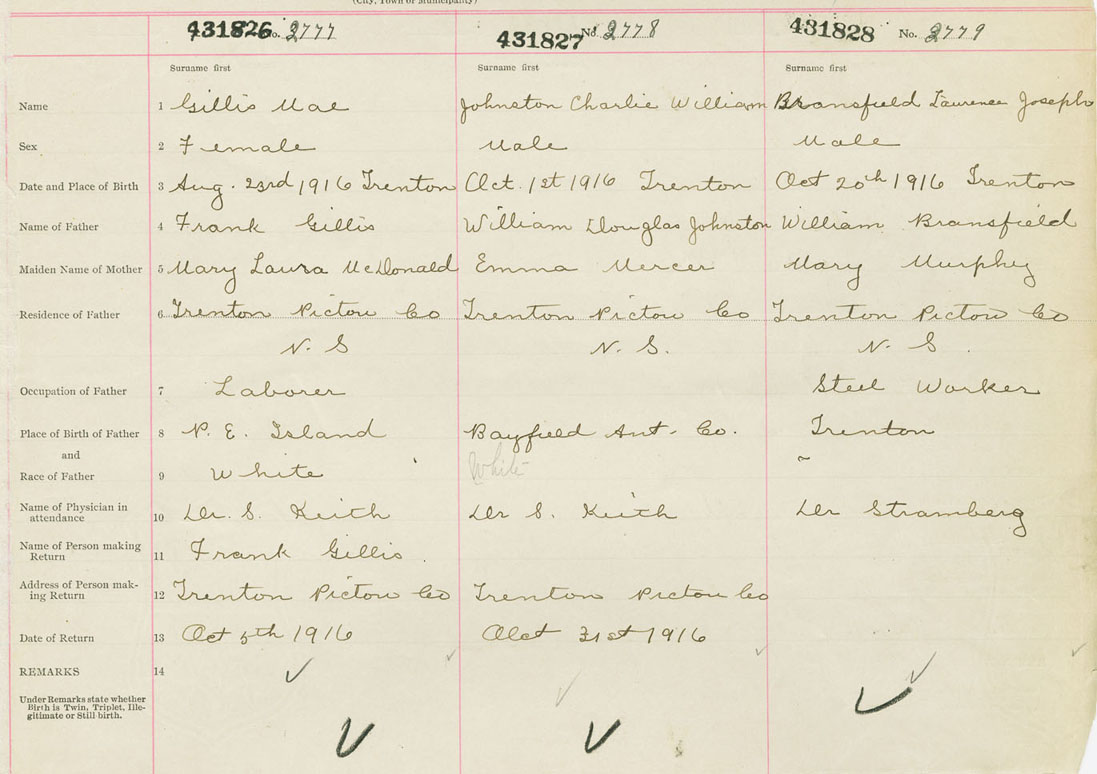 (City, Town or Municipality)
431826 No. 2777 431827 No. 2778 431828 No. 2779
Surname first Surname first Surname first
Name 1 Gillis Mae Johnston Charlie William Bransfield Laurence Joseph
Sex 2 Female Male Male
Date and Place of Birth 3 Aug. 23rd 1916 Trenton Oct. 1st 1916 Trenton Oct 20th 1916 Trenton
Name of Father 4 Frank Gillis William Douglas Johnston William Bransfield
Maiden Name of Mother 5 Mary Laura McDonald Emma Mercer Mary Murphy
Residence of Father 6 Trenton Pictou Co Trenton Pictou Co Trenton Pictou Co
N. S N. S. N. S.
Occupation of Father 7 Laborer Steel Worker
Place of Birth of Father 8 P. E. Island Bayfield Ant. Co. Trenton
and
Race of Father 9 White White
Name of Physician in
attendance 10 Dr. S. Keith Dr S. Keith Dr Stramberg
Name of Person making
Return 11 Frank Gillis.
Address of Person mak-
ing Return 12 Trenton Pictou Co Trenton Pictou Co
Date of Return 13 Oct 5th 1916 Oct 31st 1916
REMARKS 14
Under Remarks state whether
Birth is Twin, Triplet, Ille-
gitimate or Still birth.